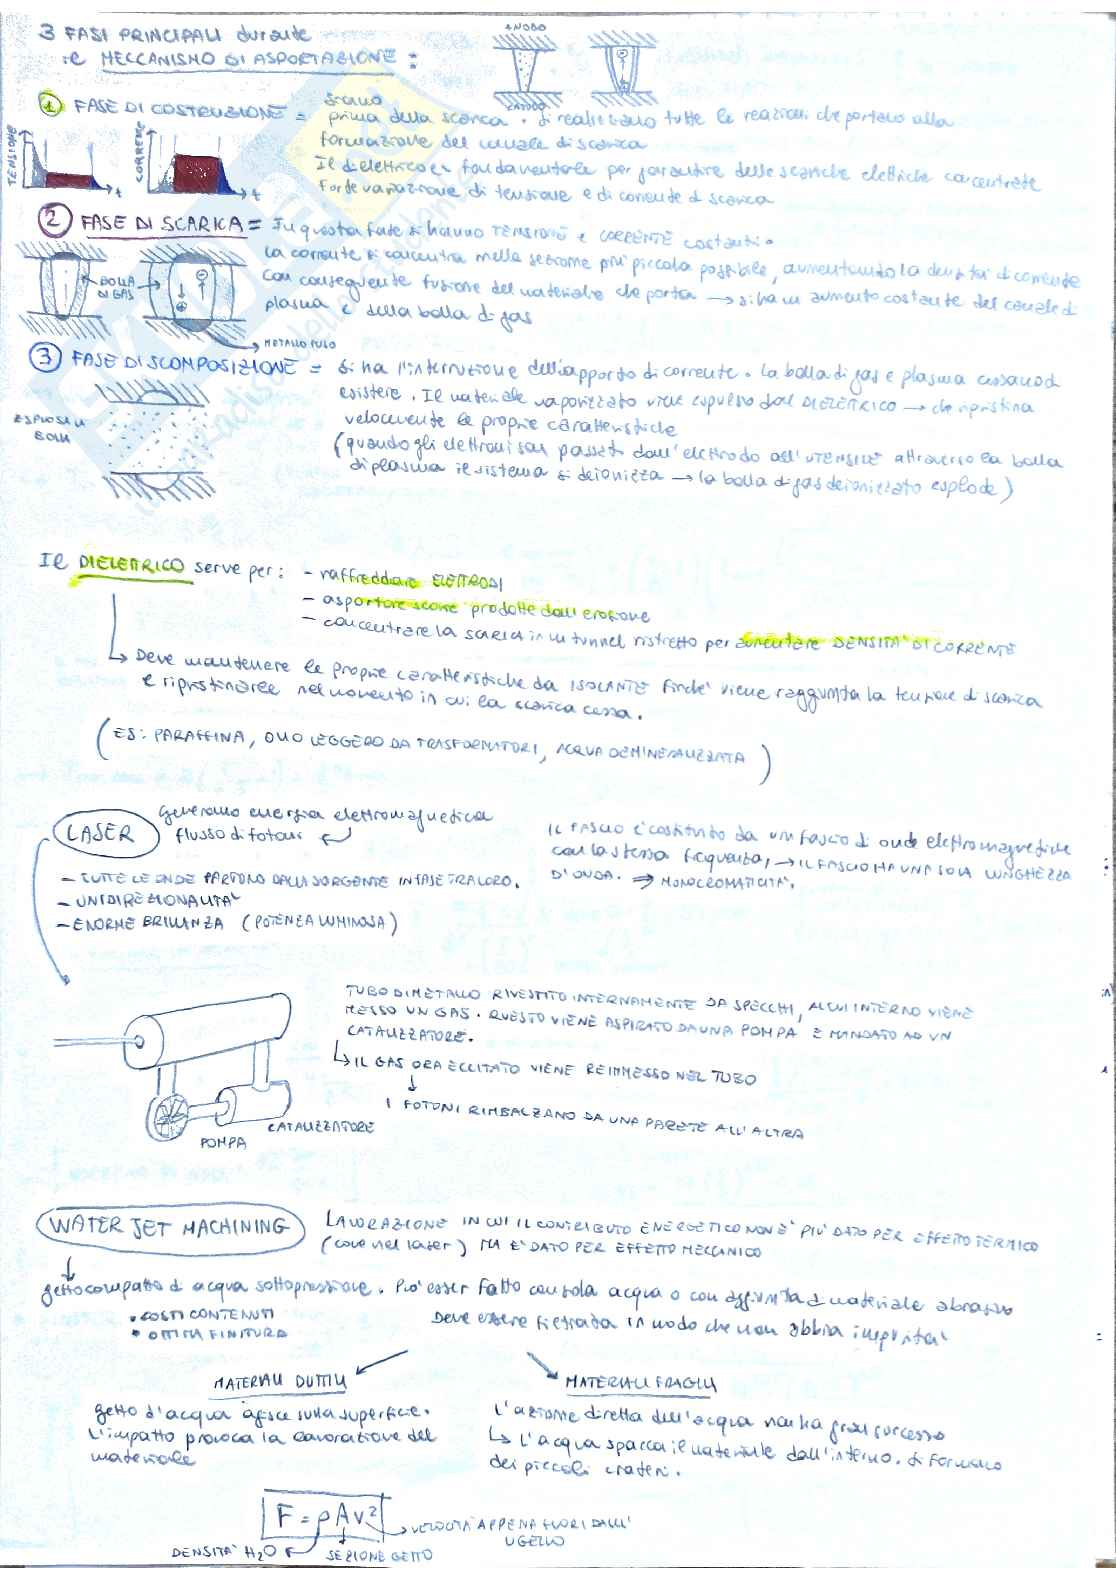 3 FASI PRINCIPALI durante
il MECCANISMO DI ASPORTAZIONE :
ANODO
CATODO
1 FASE DI COSTRUZIONE = siamo
prima della scarica. Si realizzano tutte le reazioni che portano alla
formazione del canale di scarica
Il dielettrico e' fondamentale per garantire delle scariche elettriche concentrate
Forte variazione di tensione e di corrente di scarica
TENSIONE
t
CORRENTE
t
2 FASE DI SCARICA = In questa fase si hanno TENSIONE e CORRENTE costanti.
La corrente si concentra nella sezione più piccola possibile, aumentando la densità di corrente
con conseguente fusione del materiale che porta → si ha un aumento costante del canale di
plasma e della bolla di gas
BOLLA
DI GAS
METALLO FUSO
3 FASE DI SCOMPOSIZIONE = Si ha l'interruzione dell'apporto di corrente. La bolla di gas e plasma cessano di
esistere. Il materiale vaporizzato viene espulso dal DIELETTRICO → che ripristina
velocemente le proprie caratteristiche
(quando gli elettroni son passati dall'elettrodo all'UTENSILE attraverso la bolla
di plasma il sistema si deionizza → la bolla di gas deionizzato esplode)
ESPLOSIONE
BOLLA
Il DIELETTRICO serve per: - raffreddare ELETTRODI
- asportare scorie prodotte dall'erosione
- concentrare la scarica in un tunnel ristretto per aumentare DENSITA' DI CORRENTE
↳ Deve mantenere le proprie caratteristiche da ISOLANTE finche' viene raggiunta la tensione di scarica
e ripristinarle nel momento in cui la scarica cessa.
(ES: PARAFFINA, OLIO LEGGERO DA TRASFORMATORI, ACQUA DEMINERALIZZATA)
LASER
generano energia elettromagnetica
flusso di fotoni ↵
- TUTTE LE ONDE PARTONO DALLA SORGENTE IN FASE TRA LORO.
- UNIDIREZIONALITA'
- ENORME BRILLANZA (POTENZA LUMINOSA)
IL FASCIO E' COSTITUITO DA UN FASCIO DI onde elettromagnetiche
con la stessa frequenza, → IL FASCIO HA UNA SOLA LUNGHEZZA
D'ONDA. ⇒ MONOCROMATICITA'.
TUBO DI METALLO RIVESTITO INTERNAMENTE DA SPECCHI, AL CUI INTERNO VIENE
MESSO UN GAS. QUESTO VIENE ASPIRATO DA UNA POMPA E MANDATO AD UN
CATALIZZATORE.
↳ IL GAS ORA ECCITATO VIENE REIMMESSO NEL TUBO
↓
I FOTONI RIMBALZANO DA UNA PARETE ALL'ALTRA
CATALIZZATORE
POMPA
WATER JET MACHINING
LAVORAZIONE IN CUI IL CONTRIBUTO ENERGETICO NON E' PIU' DATO PER EFFETTO TERMICO
(come nel laser) MA E' DATO PER EFFETTO MECCANICO
getto compatto di acqua sotto pressione. Puo' esser fatto con sola acqua o con aggiunta di materiale abrasivo
• COSTI CONTENUTI
• OTTIMA FINITURA
Deve essere filtrata in modo che non abbia impurita'
MATERIALI DUTTILI
getto d'acqua agisce sulla superficie.
L'impatto provoca la lavorazione del
materiale
MATERIALI FRAGILI
L'azione diretta dell'acqua non ha gran successo
↳ L'acqua spacca il materiale dall'interno. Si formano
dei piccoli crateri.
F = ρAv²
VELOCITA' APPENA FUORI DALL'
UGELLO
DENSITA' H₂O
SEZIONE GETTO